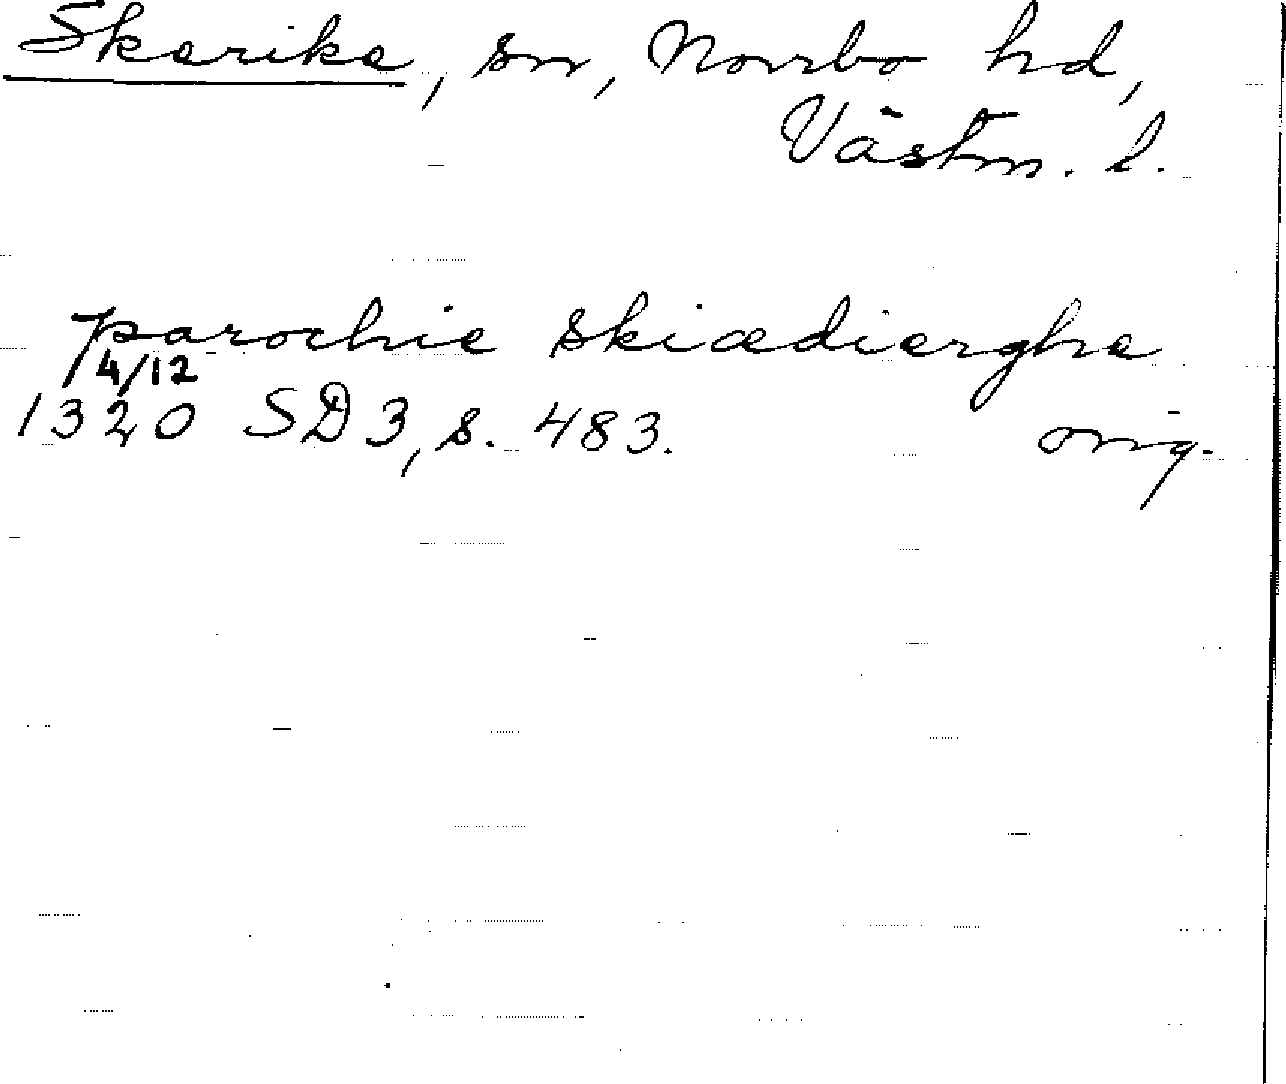 Skerike, sn, Norrbo hd,
Västm. l.
parochie skiædierghe
4/12
1320 SD 3, s. 483. orig.